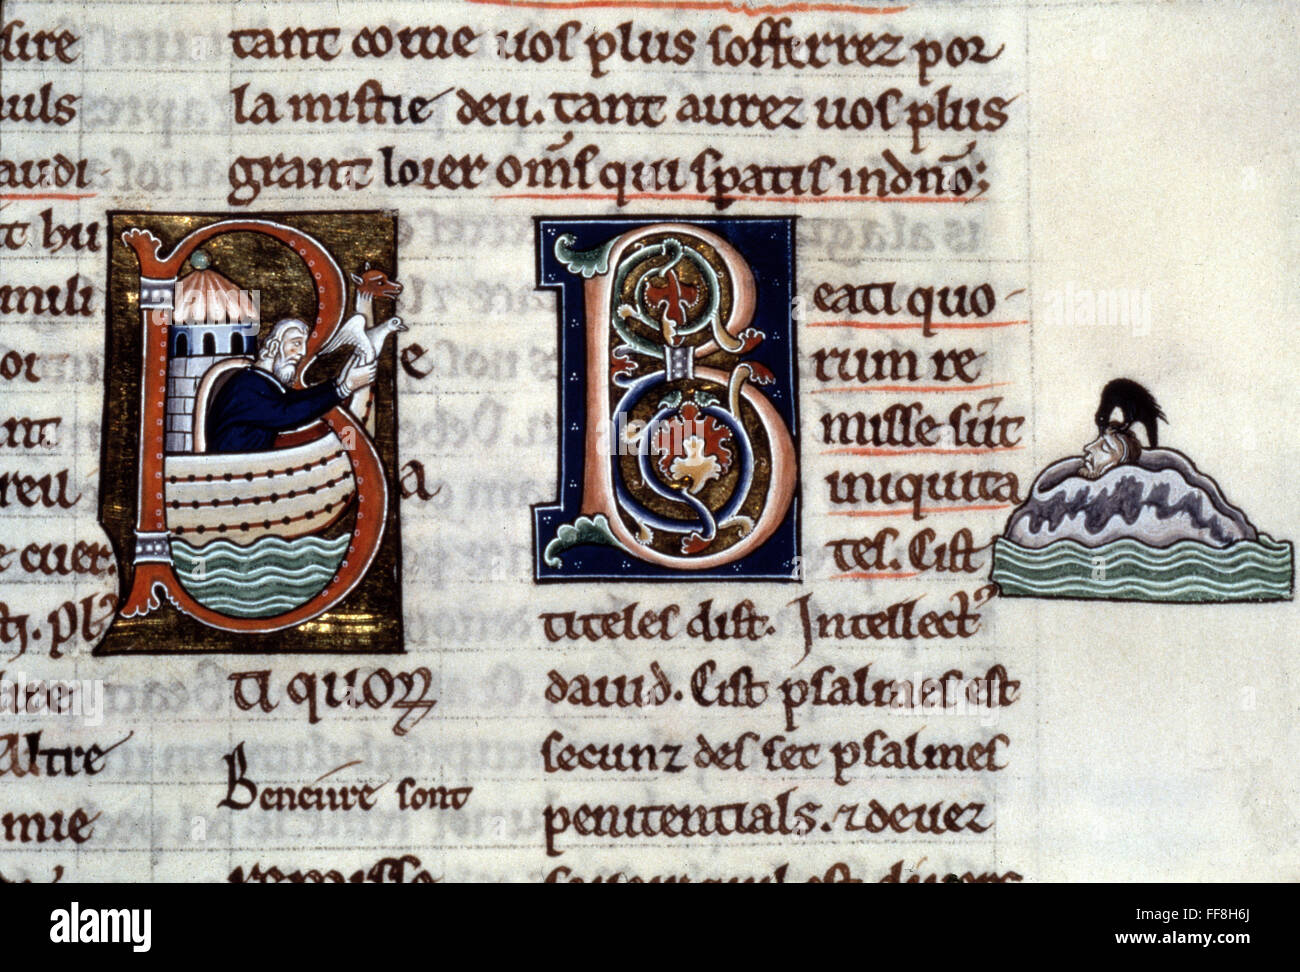 sire
uuls
audi
tt hu
mili
or
reil
cuer.
lire
Altre
mie
tant come uos plus sofferrez por
la mistie deu. tant aurez uos plus
grant loier om̄s qui sp̄atis in dn̄o;
B e
a
ti quoꝝ
Beneure sont
remisse
B eati quo-
rum re
misse sūt
iniquita
tes. Cist
titeles dist. Intellect᷒
dauid. Cist psalmes est
secunz des set psalmes
penitentials. ⁊ deuer
alamy
Image ID: FF8H6J
www.alamy.com